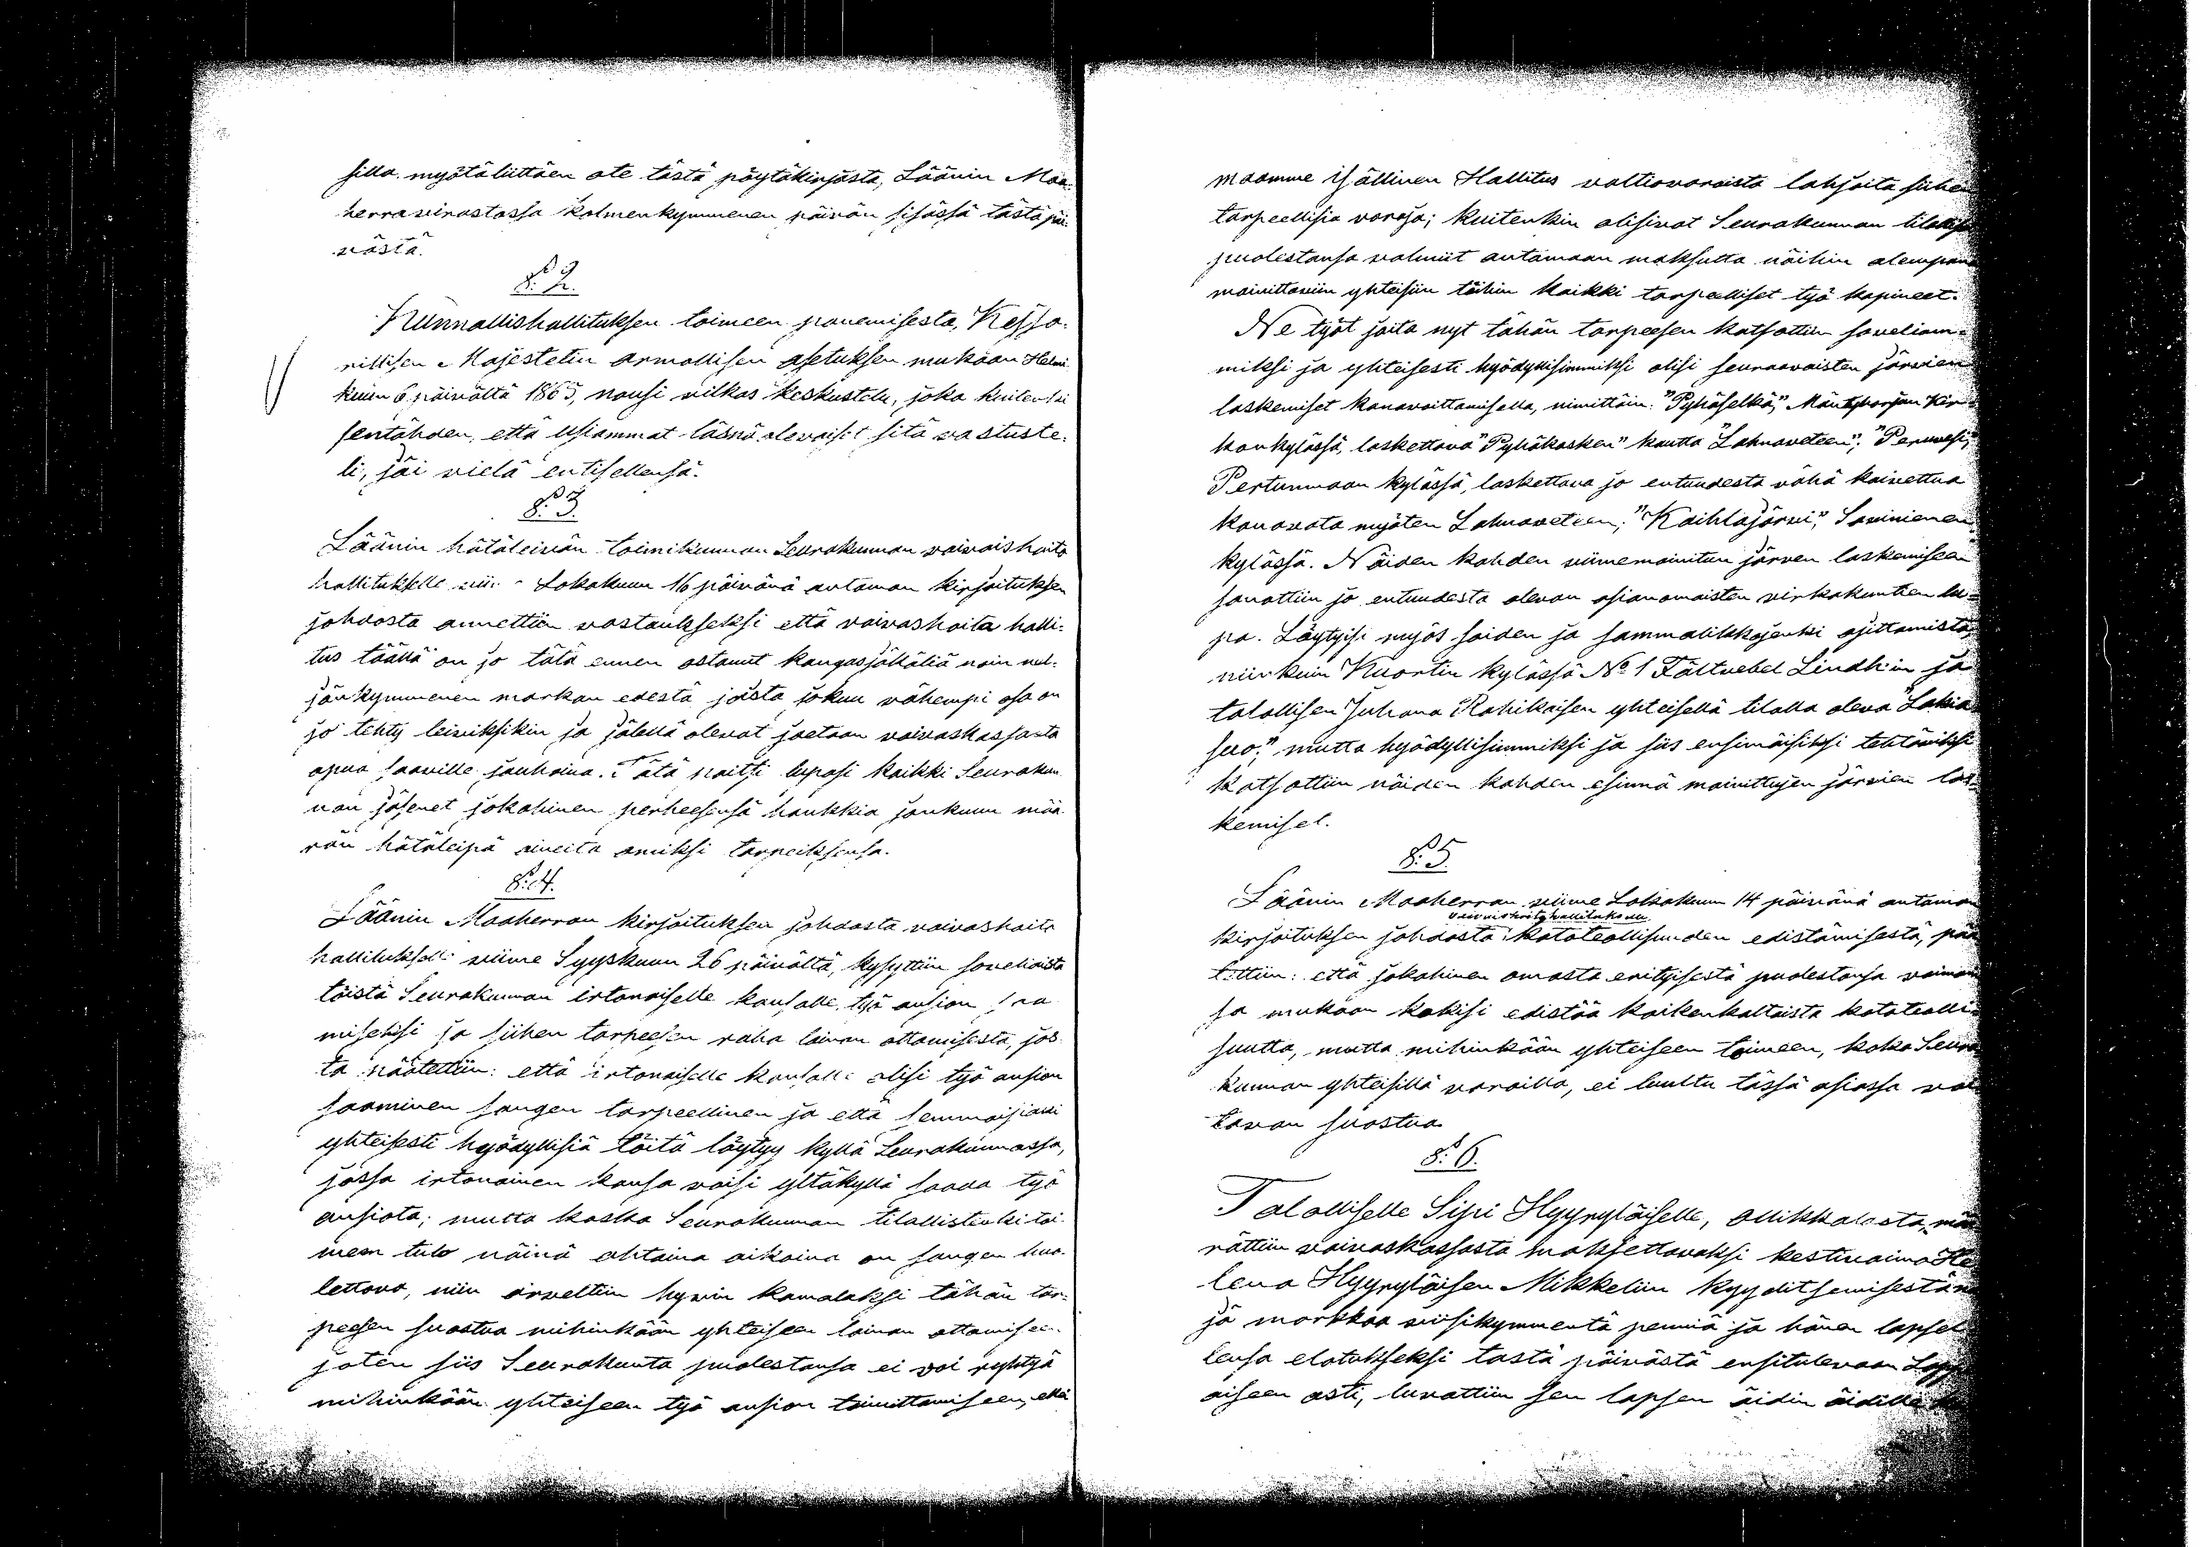 sillä myötäliittäen ote tästä pöytäkirjasta, Läänin Maa-
herravirastossa kolmenkymmenen päivän sisässä tästä päi-
västä.
§. 2.
Kunnallishallituksen toimeen panemisesta, Keisa-
rillisen Majestetin armollisen asetuksen mukaan Helmi-
kuun 6 päivältä 1865, nousi vilkas keskustelu, joka kuitenki
sentähden, että usiammat läsnä olevaiset sitä vastuste-
li, jäi vielä entisellensä.
§. 3.
Läänin hätäleivän toimikunnan Seurakunnan vaivaishoito
hallitukselle viime Lokakuun 16 päivänä antaman kirjoituksen
johdosta annettiin vastaukseksi että vaivashoito halli-
tus täällä on jo tätä ennen ostanut kangasjäkäliä noin nel-
jänkymmenen markan edestä josta jokuu vähempi osa on
jo tehty leiviksikin ja jälellä olevat jaetaan vaivaskassasta
apua saaville jauhoina. Tätä paitsi lupasi kaikki Seurakun-
nan jäsenet jokahinen perheesensä hankkia jonkuun mää-
rän hätäleipä aineita omiksi tarpeiksensa.
§. 4.
Läänin Maaherran kirjoituksen johdosta vaivashoito
hallitukselle viime Syyskuun 26 päivältä, kysyttiin soveliaista
töistä Seurakunnan irtonaiselle kansalle työ ansion saa-
miseksi ja siihen tarpeesen raha lainan ottamisesta, jos-
ta päätettiin: että irtonaiselle kansalle olisi työ ansion
saaminen sangen tarpeellinen ja että semmoisiaki
yhteisesti hyödyllisiä töitä löytyy kyllä Seurakunnassa,
jossa irtonainen kansa voisi yltäkyllä saada työ
ansiota; mutta koska Seurakunnan tilallistenki toi-
meen tulo näinä ahtaina aikoina on sangen huo-
lettava, niin arveltiin hyvin kamalaksi tähän tar-
peesen suostua mihinkään yhteiseen lainan ottamiseen
joten siis Seurakunta puolestansa ei voi ryhtyä
mihinkään yhteiseen työ ansion toimittamiseen, ellei
maamme isällinen Hallitus valtiovaroista lahjoita siihen
tarpeellisia varoja; kuitenkin olisivat Seurakunnan tilalliset
puolestansa valmiit antamaan maksutta näihin alempana
mainittaviin yhteisiin töihin kaikki tarpeelliset työ kapineet.
Ne työt joita nyt tähän tarpeesen katsottiin soveliam-
miksi ja yhteisesti hyödyllisimmiksi olisi seuraavaisten järvien
laskemiset kanavoittamisella, nimittäin: "Pyhäselkä," Mäntyharjun Kir-
konkylässä, laskettava "Pyhäkosken" kautta "Lahnaveteen"; "Peruvesi,"
Pertunmaan kylässä, laskettava jo entuudesta vähä kaivettua
kanavata myöten Lahnaveteen; "Kaihlajärvi," Saviniemen
kylässä. Näiden kahden viimemainitun järven laskemiseen
sanottiin jo entuudesta olevan asianomaisten virkakuntien lu-
pa. Löytyisi myös soiden ja sammalikkojenki ojittamista,
niinkuin Kuortin kylässä No 1 Fältvebel Lindh'in ja
talollisen Juhana Rahikaisen yhteisellä tilalla oleva "Lakia-
suo;" mutta hyödyllisimmiksi ja siis ensimäisiksi tehtäviksi
katsottiin näiden kahden esinnä mainittujen järvien las-
kemiset.
§. 5.
Läänin Maaherran viime Lokakuun 14 päivänä antaman
vaivaishoitohallitukselle
kirjoituksen johdosta kototeollisuuden edistämisestä, pää-
tettiin: että jokahinen omasta erityisestä puolestansa voiman-
sa mukaan kokisi edistää kaikenkaltaista kototeolli-
suutta, mutta mihinkään yhteiseen toimeen, koko Seura-
kunnan yhteisillä varoilla, ei luultu tässä asiassa voi-
tavan suostua.
§. 6.
Talolliselle Sipi Hyyryläiselle, Ollikkalasta, mää-
rättiin vaivaskassasta maksettavaksi kestivaimo He-
lena Hyyryläisen Mikkeliin kyyditsemisestä
jä markkaa viisikymmentä penniä ja hänen lapsel-
lensa elatukseksi tästä päivästä ensitulevaan Lopp-
aiseen asti, luvattiin sen lapsen äidin äidille